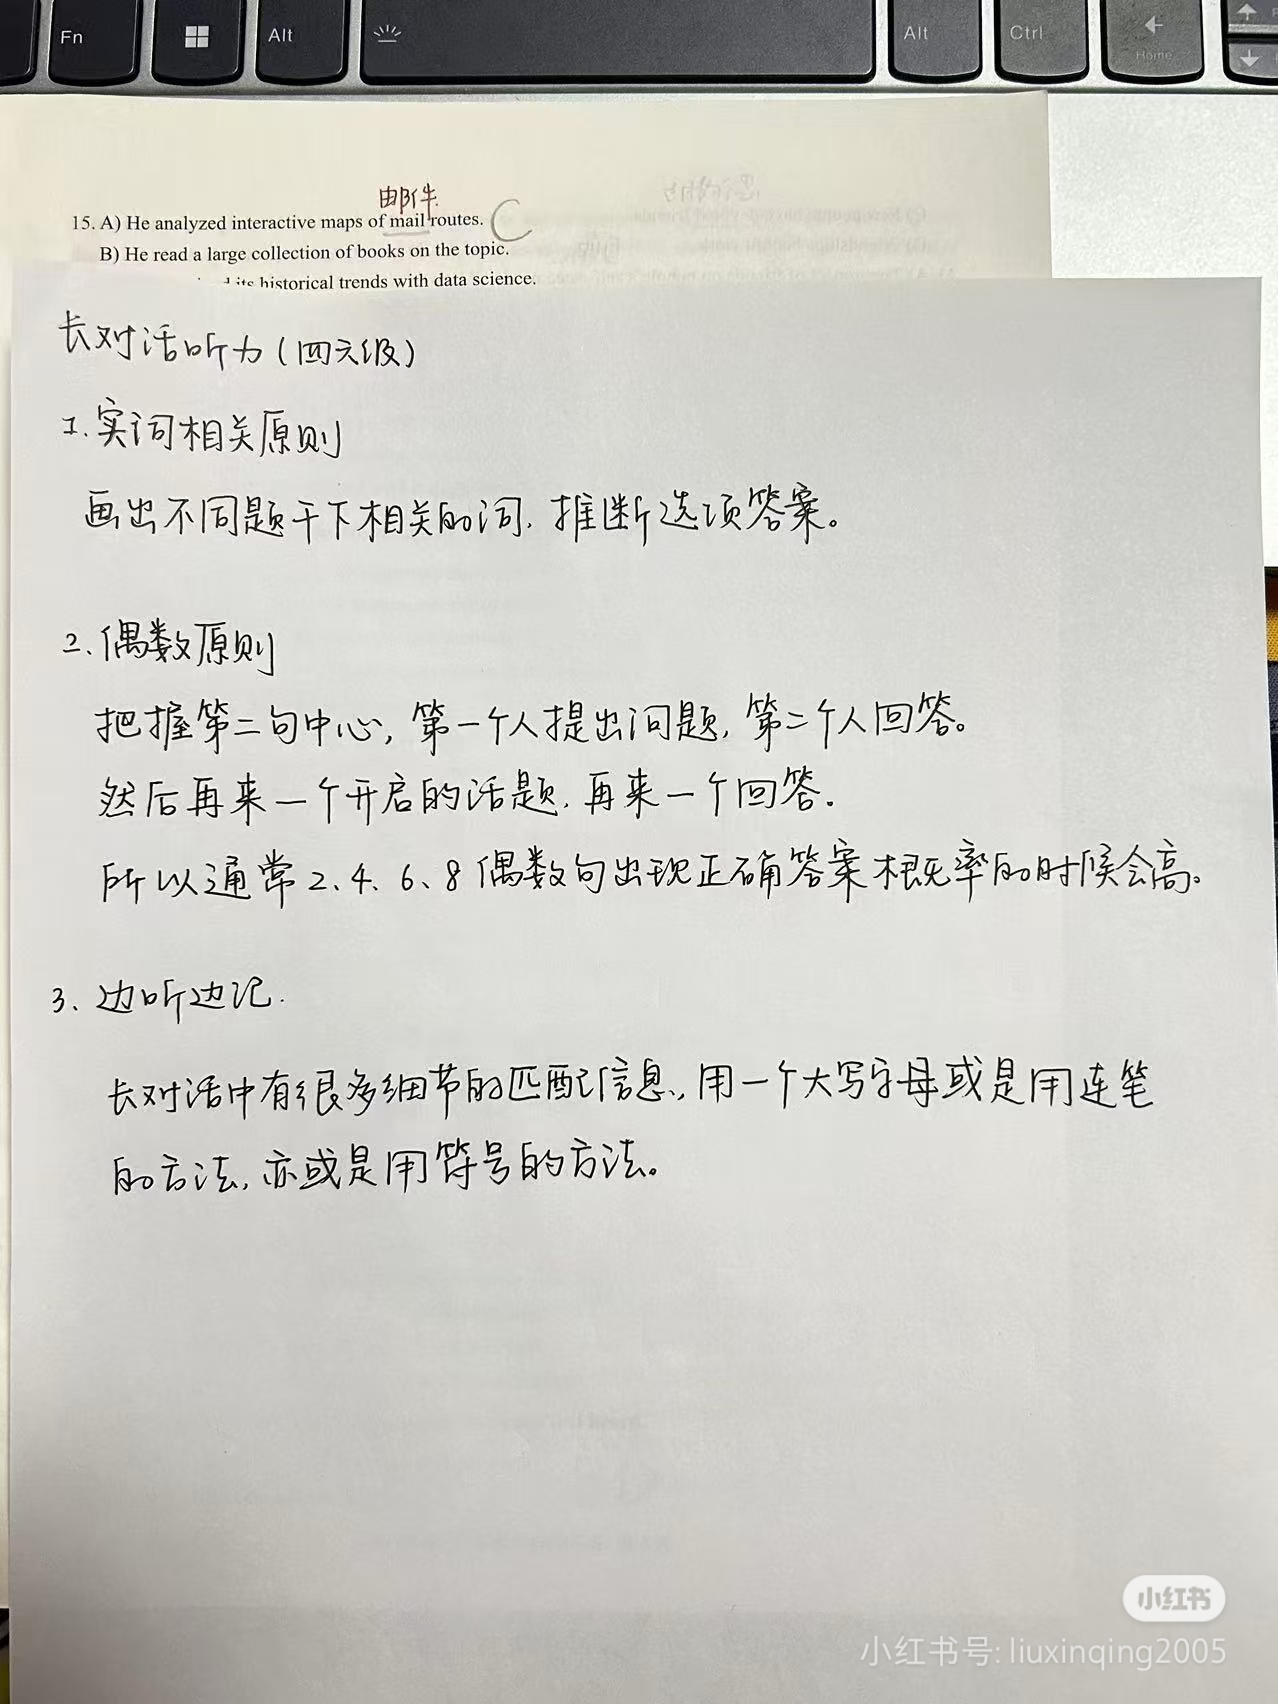 Fn
Alt
Alt
Ctrl
Home
邮件
15. A) He analyzed interactive maps of mail routes.
C
B) He read a large collection of books on the topic.
its historical trends with data science.
长对话听力(四六级)
1.实词相关原则
画出不同题干下相关的词,推断选项答案。
2.偶数原则
把握第二句中心,第一个人提出问题,第二个人回答。
然后再来一个开启的话题,再来一个回答.
所以通常2、4、6、8偶数句出现正确答案概率的时候会高。
3、边听边记.
长对话中有很多细节的匹配信息,用一个大写字母或是用连笔
的方法,亦或是用符号的方法。
小红书
小红书号: liuxinqing2005